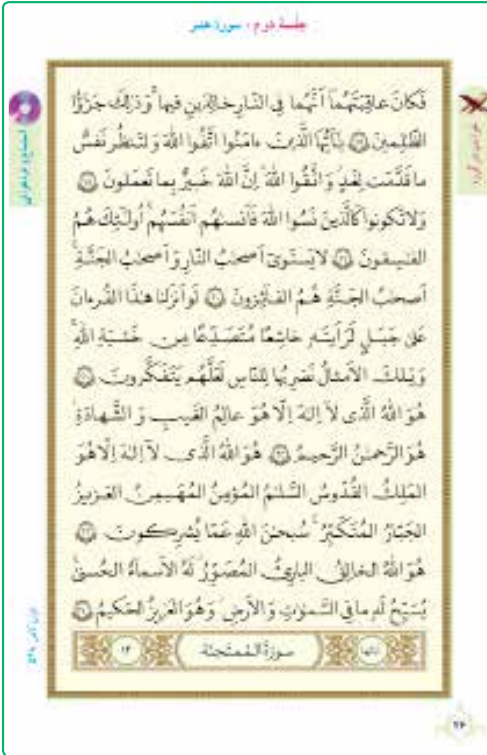 جلسهٔ دوم / سورهٔ حشر
فَكانَ عاقِبَتَهُما أَنَّهُما فِي النّارِ خالِدَينِ فيها ۚ وَ ذٰلِكَ جَزٰٓؤُا
الظّٰلِمينَ ﴿١٧﴾ يٰٓأَيُّهَا الَّذينَ ءامَنُوا اتَّقُوا اللهَ وَ لْتَنظُر نَفسٌ
ما قَدَّمَت لِغَدٍ ۖ وَ اتَّقُوا اللهَ ۚ إِنَّ اللهَ خَبيرٌ بِما تَعمَلونَ ﴿١٨﴾
وَ لا تَكونوا كَالَّذينَ نَسُوا اللهَ فَأَنسىٰهُم أَنفُسَهُم ۚ أُولٰٓئِكَ هُمُ
الفٰسِقونَ ﴿١٩﴾ لا يَستَوي أَصحٰبُ النّارِ وَ أَصحٰبُ الجَنَّةِ ۚ
أَصحٰبُ الجَنَّةِ هُمُ الفآئِزونَ ﴿٢٠﴾ لَو أَنزَلنا هٰذَا القُرءانَ
عَلىٰ جَبَلٍ لَرَأَيتَهُ خاشِعًا مُتَصَدِّعًا مِن خَشيَةِ اللهِ ۚ
وَ تِلكَ الأَمثالُ نَضرِبُها لِلنّاسِ لَعَلَّهُم يَتَفَكَّرونَ ﴿٢١﴾
هُوَ اللهُ الَّذي لآ إِلٰهَ إِلّا هُوَ ۖ عالِمُ الغَيبِ وَ الشَّهادَةِ ۖ
هُوَ الرَّحمٰنُ الرَّحيمُ ﴿٢٢﴾ هُوَ اللهُ الَّذي لآ إِلٰهَ إِلّا هُوَ
المَلِكُ القُدّوسُ السَّلٰمُ المُؤمِنُ المُهَيمِنُ العَزيزُ
الجَبّارُ المُتَكَبِّرُ ۚ سُبحٰنَ اللهِ عَمّا يُشرِكونَ ﴿٢٣﴾
هُوَ اللهُ الخالِقُ البارِئُ المُصَوِّرُ ۖ لَهُ الأَسمآءُ الحُسنىٰ ۚ
يُسَبِّحُ لَهُ ما فِي السَّمٰوٰتِ وَ الأَرضِ ۖ وَ هُوَ العَزيزُ الحَكيمُ ﴿٢٤﴾
ءاياتُها
سورَةُ المُمتَحِنَة
١٣
٢۶